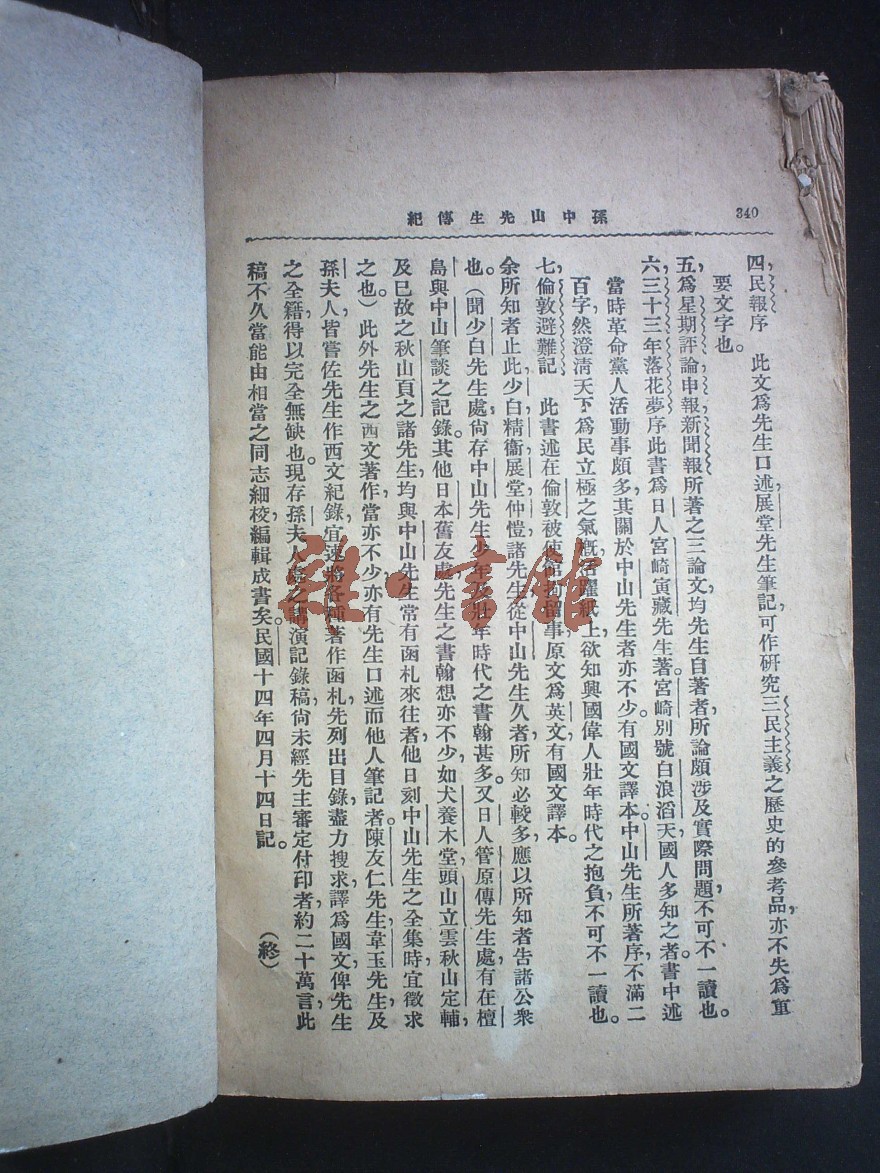 340
孫中山先生傳紀
四，民報序　此文爲先生口述，展堂先生筆記，可作研究三民主義之歷史的參考品，亦不失爲重
要文字也。
五，爲星期評論，申報，新聞報所著之三論文，均先生自著者，所論頗涉及實際問題，不可不一讀也。
六，三十三年落花夢序，此書爲日人宮崎寅藏先生著，宮崎別號白浪滔天，國人多知之者，書中述
當時革命黨人活動事頗多，其關於中山先生者亦不少。有國文譯本，中山先生所著序，不滿二
百字，然澄淸天下，爲民立極之氣槪，活躍紙上，欲知興國偉人壯年時代之抱負，不可不一讀也。
七，倫敦避難記　此書述在倫敦被使館拘留事，原文爲英文，有國文譯本。
余所知者止此，少白，精衞，展堂，仲愷諸先生從中山先生久者，所知必較多，應以所知者告諸公衆
也。（聞少白先生處，尙存中山先生少年及壯年時代之書翰甚多。又日人管原傳先生處，有在檀
島與中山筆談之記錄。其他日本舊友處，先生之書翰想亦不少，如犬養木堂，頭山立雲，秋山定輔，
及已故之秋山頁之諸先生，均與中山先生常有函札來往者，他日刻中山先生之全集時，宜徵求
之也）此外先生之西文著作，當亦不少，亦有先生口述而他人筆記者。陳友仁先生，韋玉先生，及
孫夫人，皆嘗佐先生作西文紀錄，宜速將各種著作函札，先列出目錄，盡力搜求，譯爲國文，俾先生
之全籍，得以完全無缺也。現存孫夫人處之講演記錄稿，尙未經先主審定付印者，約二十萬言，此
稿不久當能由相當之同志細校，編輯成書矣。民國十四年四月十四日記。
（終）
雜·書館